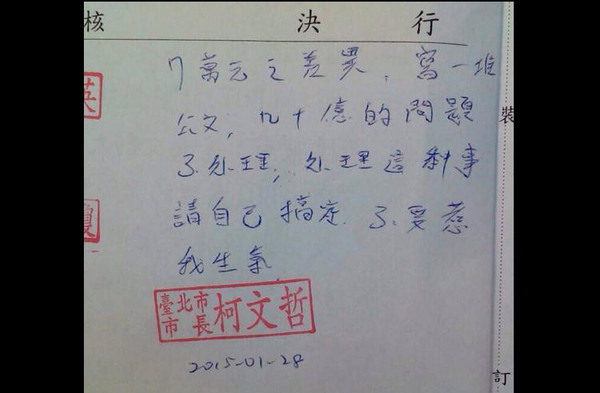 核 決行
7萬元之差異，寫一堆
公文，九十億的問題
不处理，处理這料事
請自己搞定，不要惹
我生氣。
臺北市
市長柯文哲
2015-01-28
裝
訂
英